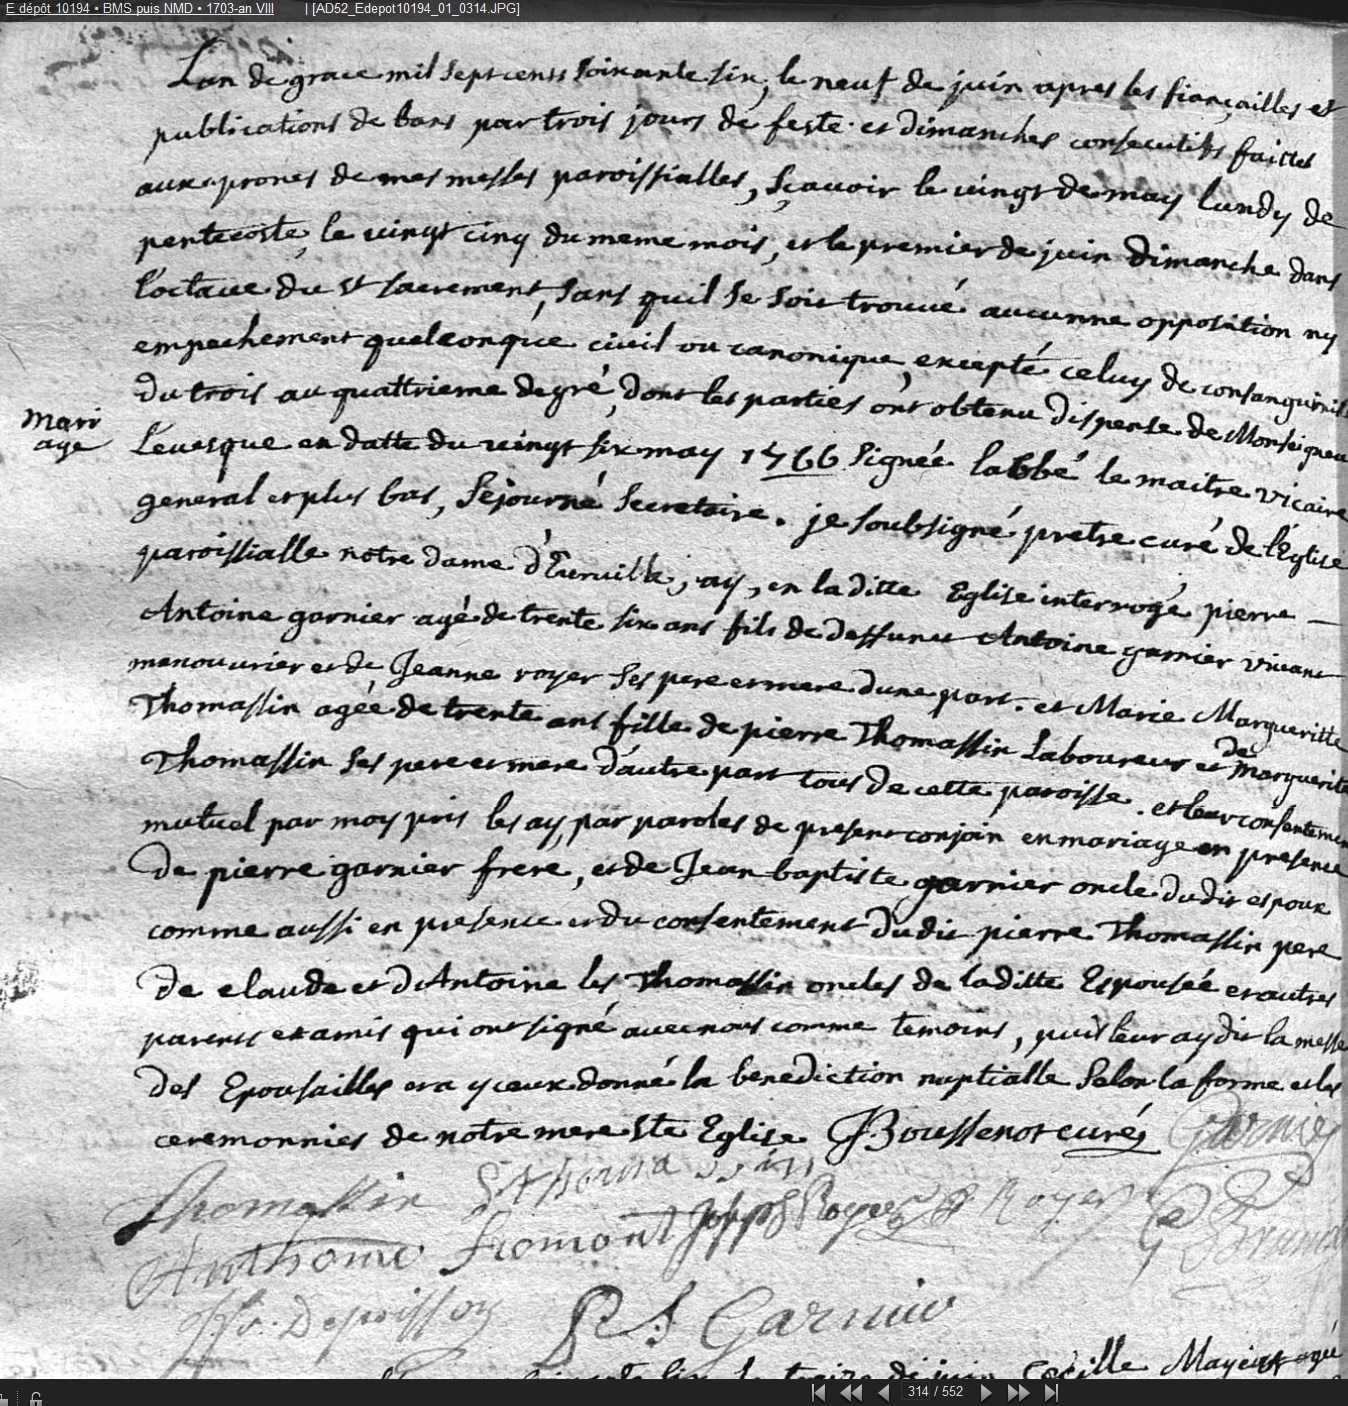 E dépôt 10194 • BMS puis NMD • 1703-an VIII | [AD52_Edepot10194_01_0314.JPG]
Lan de grace mil sept cents soixante six, le neuf de juin apres les fiançailles et
publications de bans par trois jours de feste et dimanches consecutifs faittes
aux prones de mes messes paroissialles, sçavoir le vingt de may lundy de
pentecoste, le vingt cinq du meme mois, et le premier de juin dimanche dans
l'octave du st sacrement, sans quil se soit trouvé aucunne opposition ny
empechement quelconque civil ou canonique, excepté celuy de consanguinité
du trois au quattrieme degré, dont les parties ont obtenu dispense de Monseigneur
Mari
age
Levesque en datte du vingt six may 1766 signée labbé le maitre vicaire
general et plus bas, Sejourné Secretaire. je soubsigné pretre curé de l'Eglise
paroissialle notre dame d'Eurville, ay, en la ditte Eglise interrogé pierre
Antoine garnier agé de trente six ans fils de deffunct Antoine garnier vivant
manouvrier et de Jeanne royer ses pere et mere d'une part. et Marie Margueritte
Thomassin agée de trente ans fille de pierre Thomassin Laboureur et de Marguerite
Thomassin ses pere et mere d'autre part tous de cette paroisse. et leur consentement
mutuel par moy pris les ay, par paroles de present conjoin en mariage en presence
de pierre garnier frere, et de Jean baptiste garnier oncle dudit epoux
comme aussi en presence et du consentement dudit pierre Thomassin pere
de claude et d'Antoine les Thomassin oncles de laditte Espousée et autres
parents et amis qui ont signé avec nous comme temoins, puis leur ay dit la messe
des Epousailles et a yceux donné la benediction nuptialle selon la forme et les
ceremonnies de notre mere ste Eglise JBoussenot curé Garnier
Thomassin Royer
Anthoine fromont Joseph Royer
Depoisson
Garnier
Cecille
314 / 552